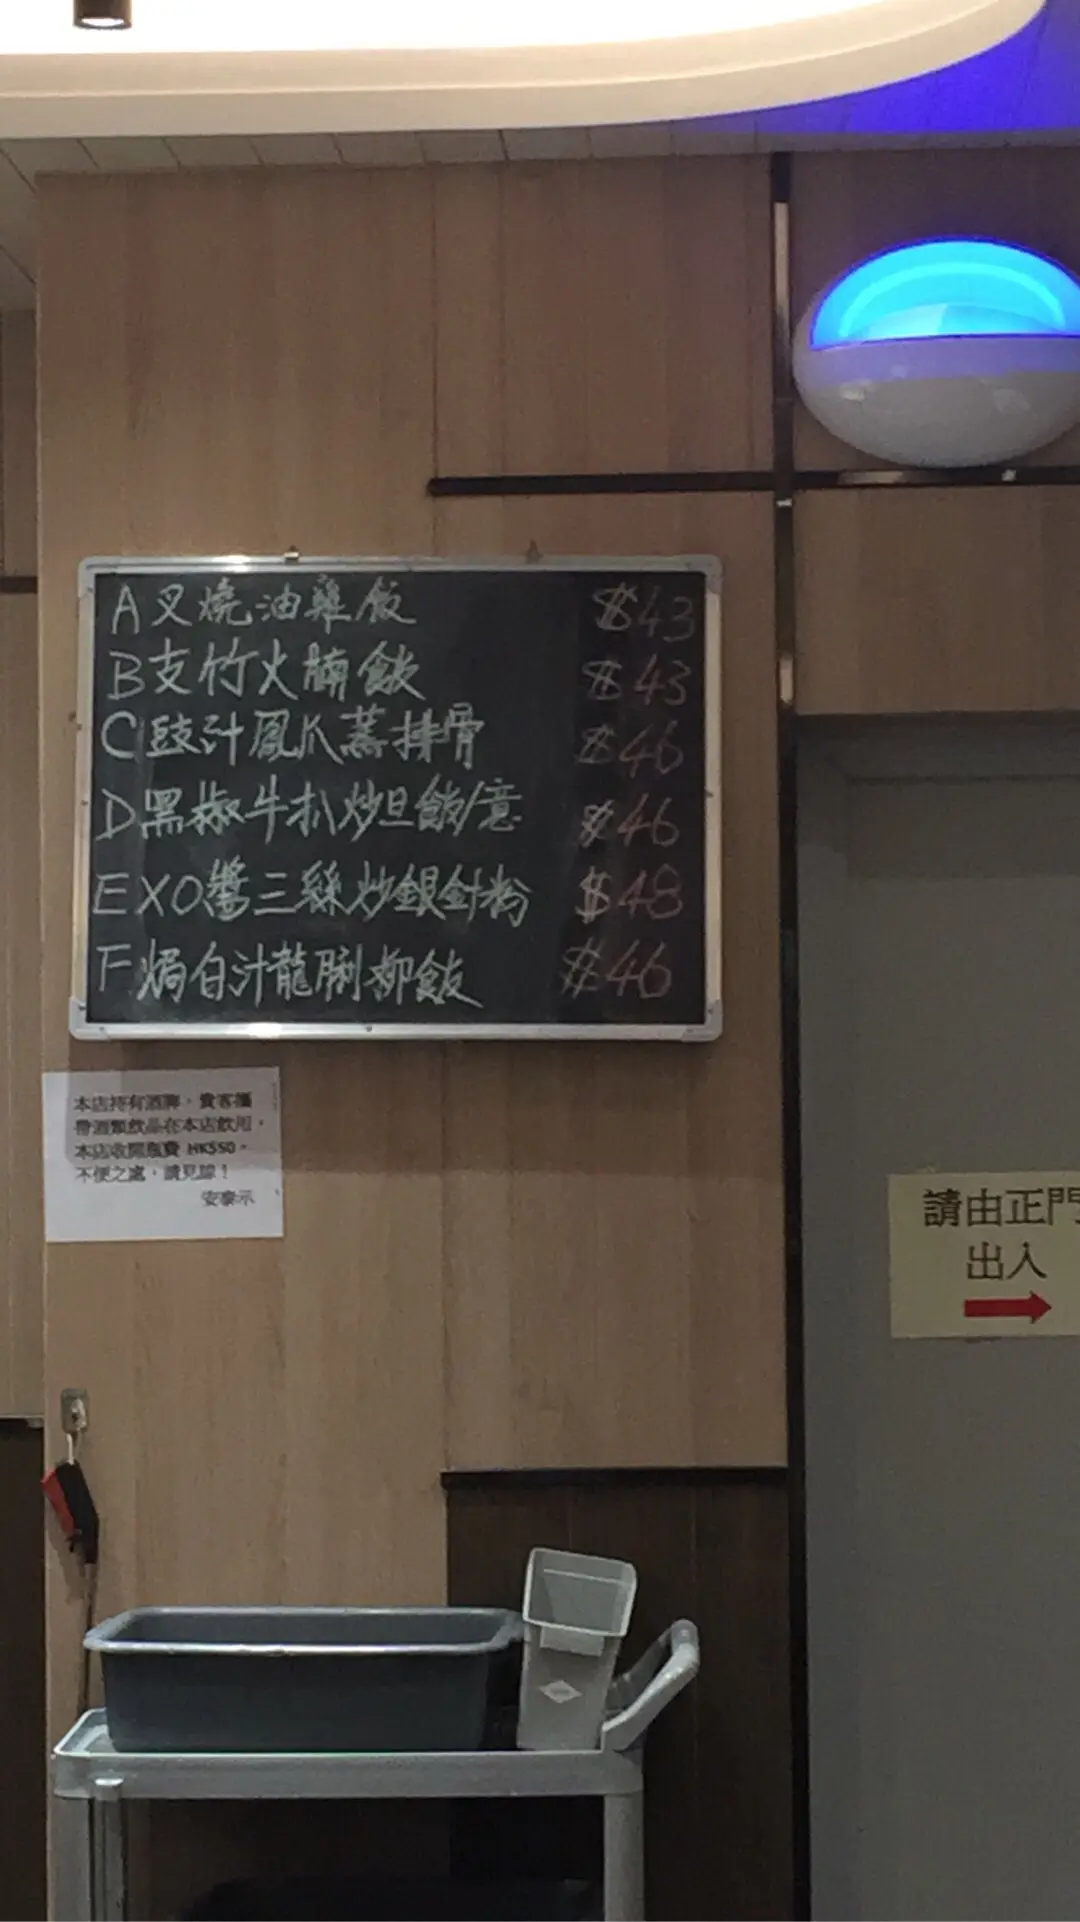 A 叉燒油雞飯 $43
B 支竹火腩飯 $43
C 豉汁鳳爪蒸排骨 $46
D 黑椒牛扒炒旦飯/意 $46
E XO醬三絲炒銀針粉 $48
F. 焗白汁龍脷柳飯 $46
本店持有酒牌，貴客攜
帶酒類飲品在本店飲用，
本店收開瓶費 HK$50。
不便之處，請見諒！
安泰示
請由正門
出入